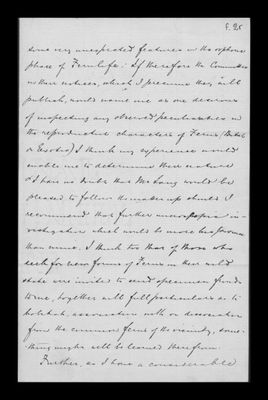 f. 25
some very unexpected features in the oophore
phase of Fern life: If therefore the Committee
in their notices, which I presume they will
publish, would name me as one desirous
of inspecting any observed peculiarities in
the reproductive characters of Ferns, (British
or Exotic) I think my experience would
enable me to determine their nature
& I have no doubt that Mr Lang would be
pleased to follow the matter up should I
recommend that further microscopic in-
vestigation which would be more his province
than mine. I think too that if those who
seek for new forms of Ferns in their wild
state were invited to send specimen fronds
to me, together with full particulars as to
habitat, association with or dissociation
from the common ferns of the vicinity, some-
thing might well be learned therefrom.
Further, as I have a considerable